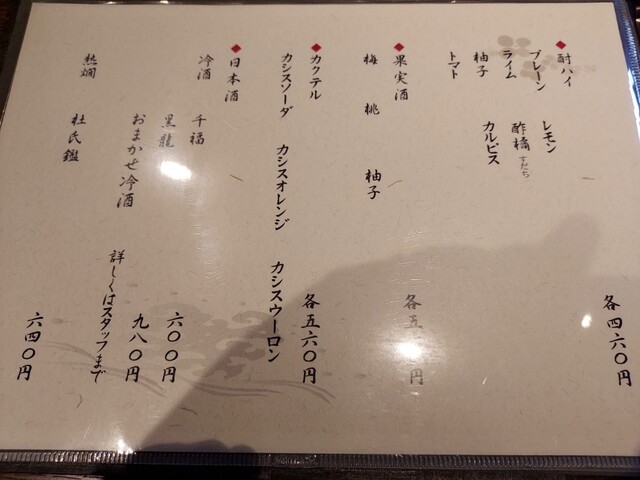 ◆酎ハイ 各四六〇円
プレーン レモン
ライム 酢橘 すだち
柚子 カルピス
トマト
◆果実酒 各五 円
梅 桃 柚子
◆カクテル 各五六〇円
カシスソーダ カシスオレンジ カシスウーロン
◆日本酒
冷酒 千福 六〇〇円
黒龍 九八〇円
おまかせ冷酒 詳しくはスタッフまで
熱燗 杜氏鑑 六四〇円